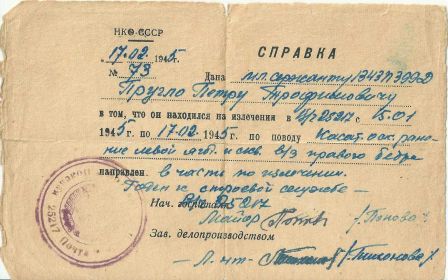 НКО-СССР
17.02. 1945
СПРАВКА
№ 73
Дана мл. сержанту
Пругло Петру Трофимовичу
в том, что он находился на излечении в 25217 с 15.01
1945 г. по 17.02. 1945 г. по поводу Касат. оск. ране-
ние левой и правого бедра
направлен. в часть по излечении.
Годен к строевой службе —
Нач. госпиталя 25217
Майор /Попова/
Зав. делопроизводством
— Л-нт /Тихонова/
25217